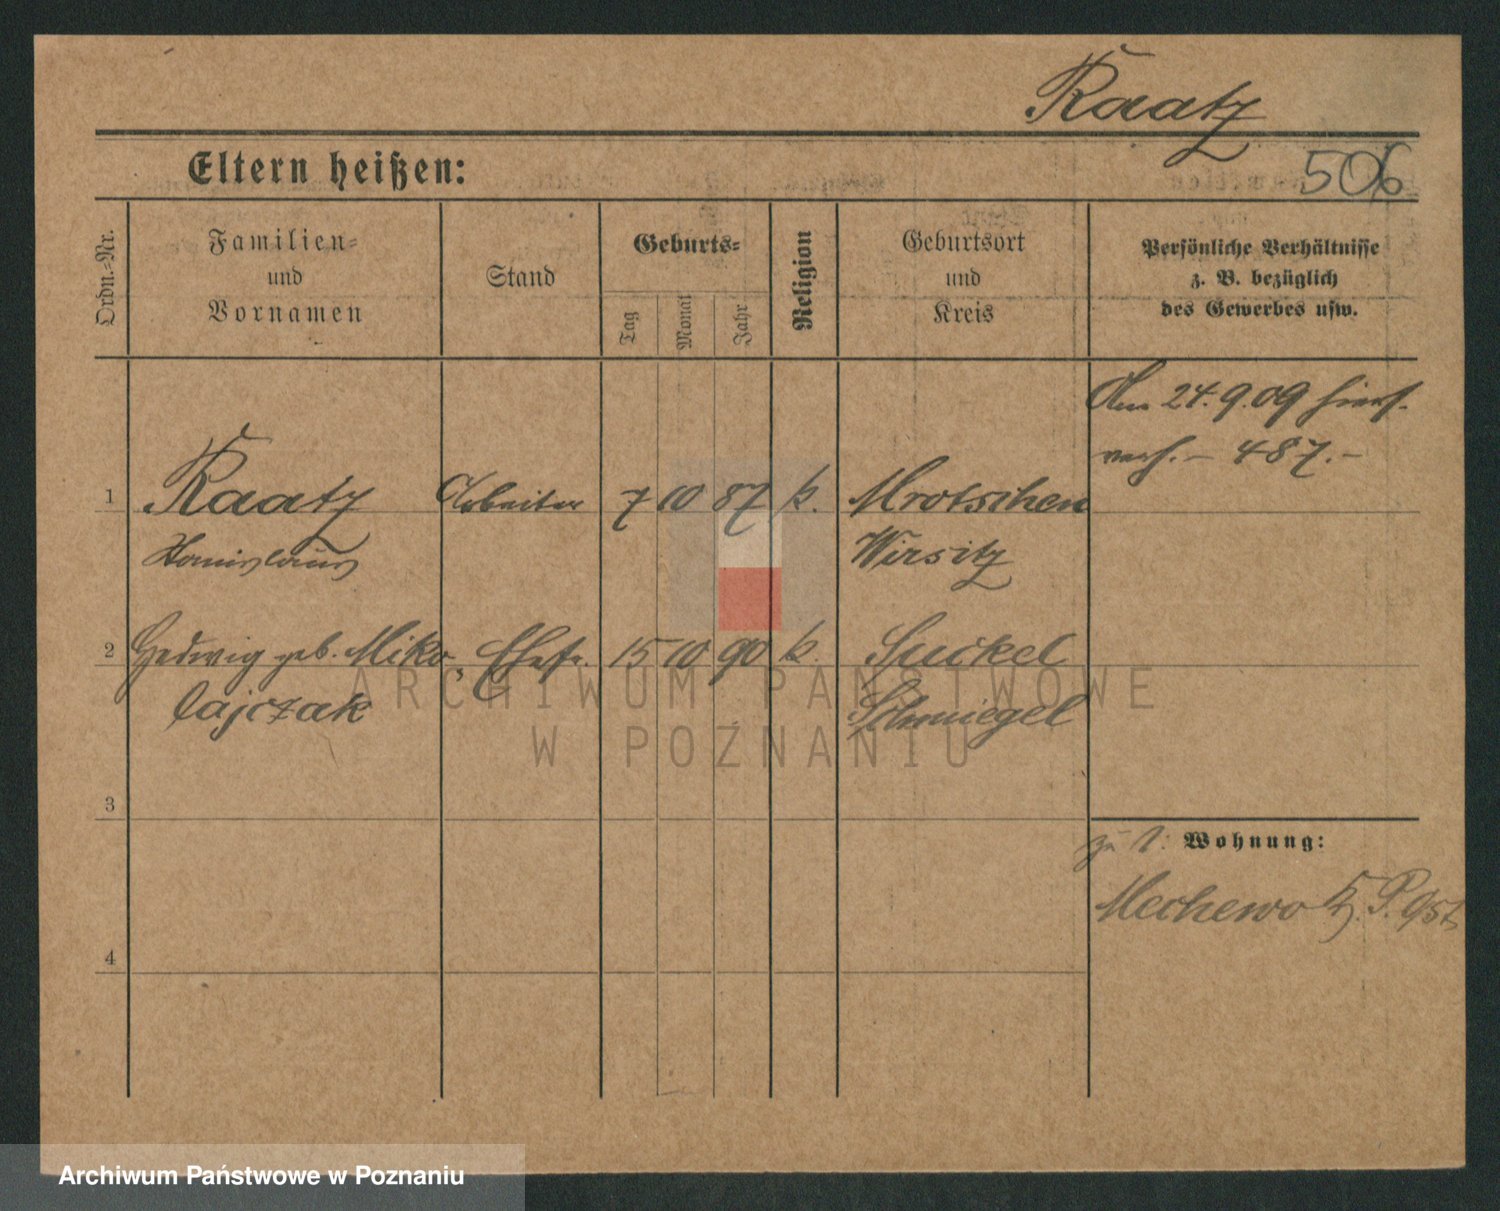 Raatz
Eltern heißen:
506
Ordn.=Nr.
Familien=
und
Vornamen
Stand
Geburts=
Tag
Monat
Jahr
Religion
Geburtsort
und
Kreis
Persönliche Verhältnisse
z. B. bezüglich
des Gewerbes usw.
Am 24.9.09 hiers.
verh. – 487. –
1 Raatz Arbeiter 7 10 87 k. Mrotschen
Stanislaus Wirsitz
2 Hedwig geb. Miko Ehefr. 15 10 90 k. Suckel
lajczak Schmiegel
3
zu 1. Wohnung:
Mechewo
4
ARCHIWUM PAŃSTWOWE
W POZNANIU
Archiwum Państwowe w Poznaniu